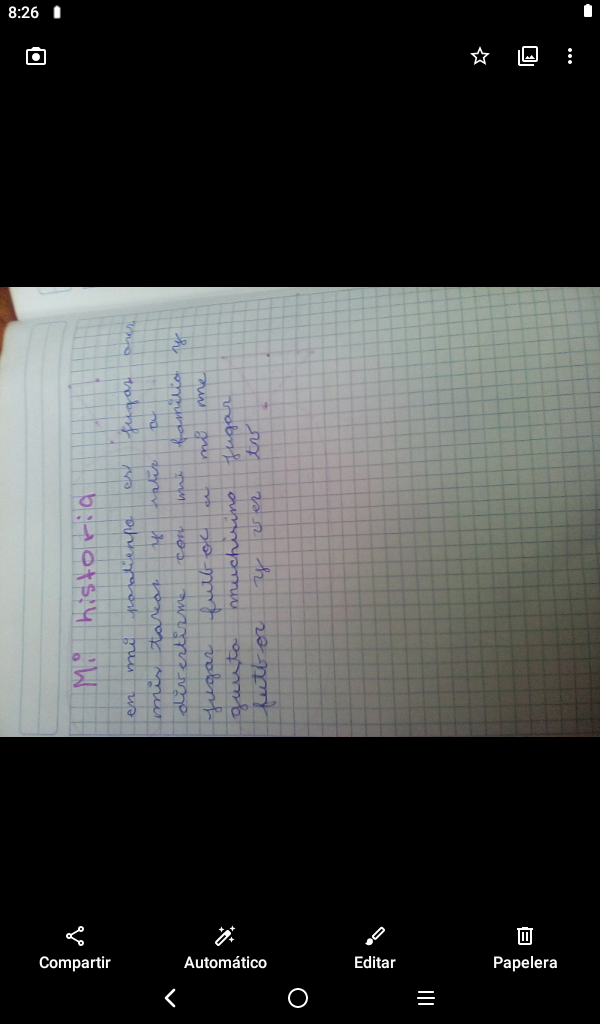 8:26
Mi historia
en mi pasatienpo es jugar
mis tareas y salir a
divertirme con mi familia y
jugar futbol a mi me
gusta muchisimo jugar
futbol y ver tv
Compartir
Automático
Editar
Papelera